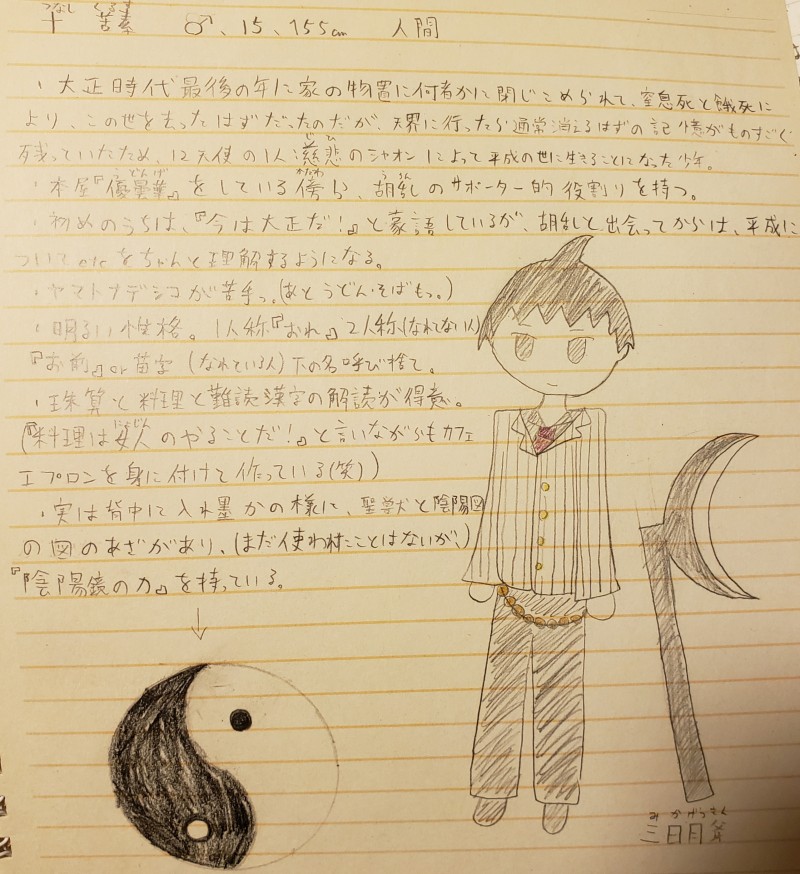 つなし くるす
十 苦素 ♂、15、155cm 人間
・大正時代最後の年に家の物置に何者かに閉じこめられて、窒息死と餓死に
より、この世を去ったはずだったのだが、天界に行ったら通常消えるはずの記憶がものすごく
残っていたため、12天使の1人慈悲のシャオンによって平成の世に生きることになった少年。
・本屋『優曇華』をしている傍ら、胡乱のサポーター的役割りを持つ。
・初めのうちは、『今は大正だ!』と豪語しているが、胡乱と出会ってからは、平成に
ついてetcをちゃんと理解するようになる。
・ヤマトナデシコが苦手っ。(あとうどん・そばもっ。)
・明るい性格。1人称『おれ』2人称、(なれてない人)
『お前』or苗字 (なれている人)下の名呼び捨て。
・珠算と料理と難読漢字の解読が得意。
(『料理は女人のやることだ!』と言いながらもカフェ
エプロンを身に付けて作っている(笑))
・実は背中に入れ墨かの様に、聖獣と陰陽図
の図のあざがあり、(まだ使われたことはないが、)
『陰陽鏡の力』を持っている。
三日月斧